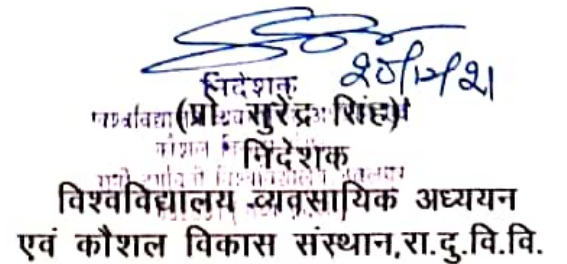 २०/१२/२१
निदेशक
(प्रो. सुरेंद्र सिंह)
निदेशक
विश्वविद्यालय व्यवसायिक अध्ययन
एवं कौशल विकास संस्थान, रा.दु.वि.वि.